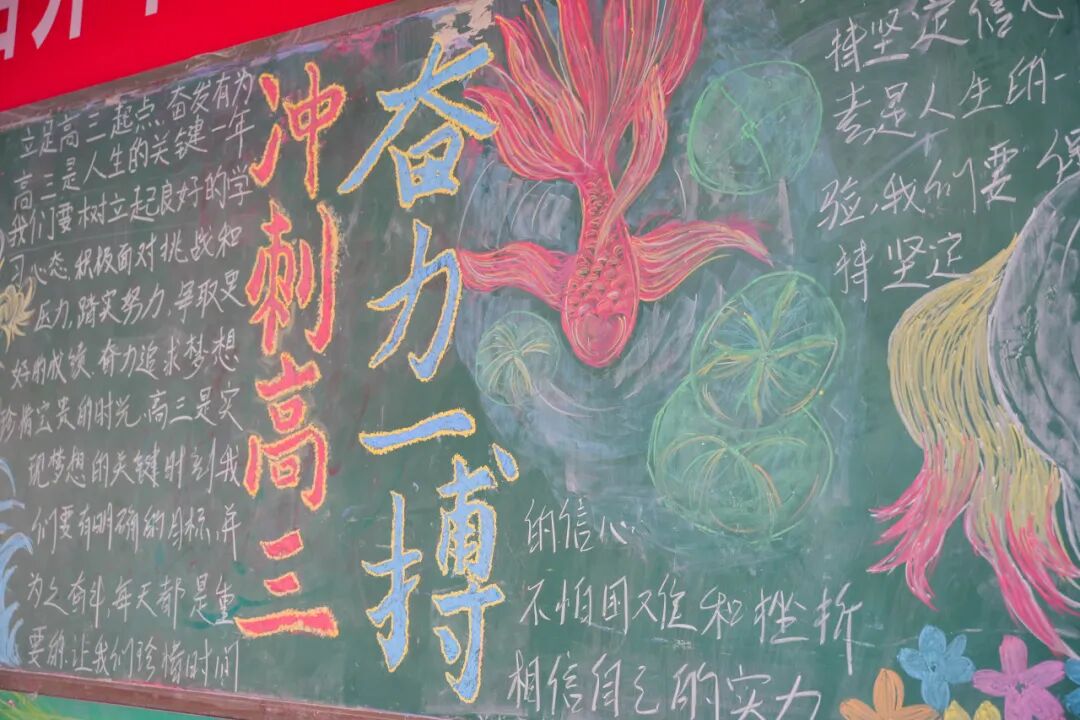 立足高三起点,奋发有为
高三是人生的关键一年
我们要树立起良好的学
习心态,积极面对挑战和
压力,踏实努力,争取更
好的成绩.奋力追求梦想
珍惜宝贵的时光,高三是实
现梦想的关键时刻我
们要有明确的目标,并
为之奋斗,每天都是重
要的.让我们珍惜时间
冲刺高三
奋力一搏
持坚定信
是人生的一
验,我们要
持坚定
的信心
不怕困难和挫折
相信自己的实力